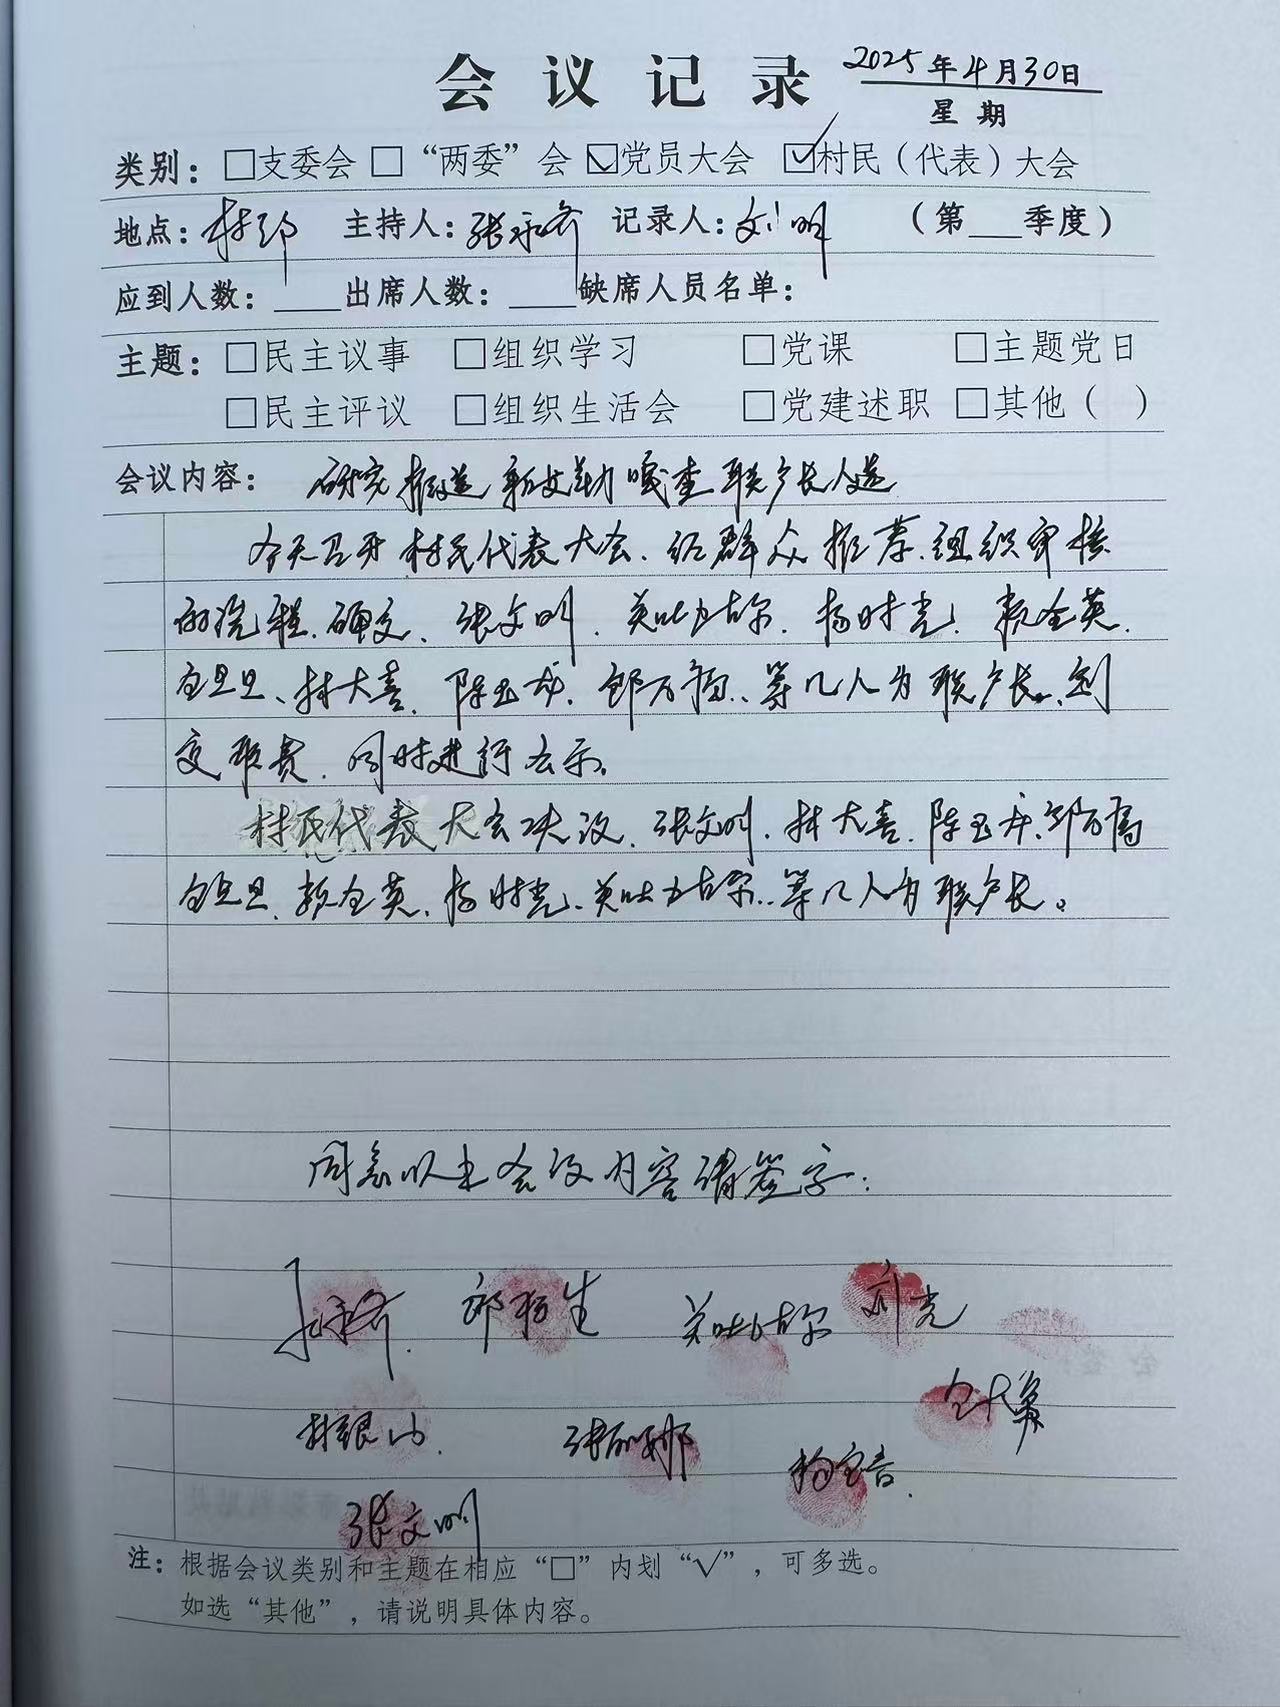 会议记录 2025年4月30日
星期
类别：□支委会 □“两委”会 ☑党员大会 ☑村民（代表）大会
地点：村部 主持人：张永斉 记录人：刘明 （第___季度）
应到人数：____出席人数：____缺席人员名单：
主题：□民主议事 □组织学习 □党课 □主题党日
□民主评议 □组织生活会 □党建述职 □其他（ ）
会议内容： 研究推选新艾勒嘎查联户长人选
今天召开村民代表大会、经群众推荐、组织审核
的流程、确定、张文明、吴吐力古尔、杨时光、赖全英、
包旦旦、林大喜、陈玉成、邰万福、等几人为联户长、制
定职责、同时进行公示。
村民代表大会决议、张文明、林大喜、陈玉、邰万
包旦旦、赖全英、杨时光、吴吐力古尔、等几人为联户长。
同意以上会议内容请签字：
吴吐力古尔 刘光
林银山 包
张丽娜
张文明
注：根据会议类别和主题在相应“□”内划“√”，可多选。
如选“其他”，请说明具体内容。